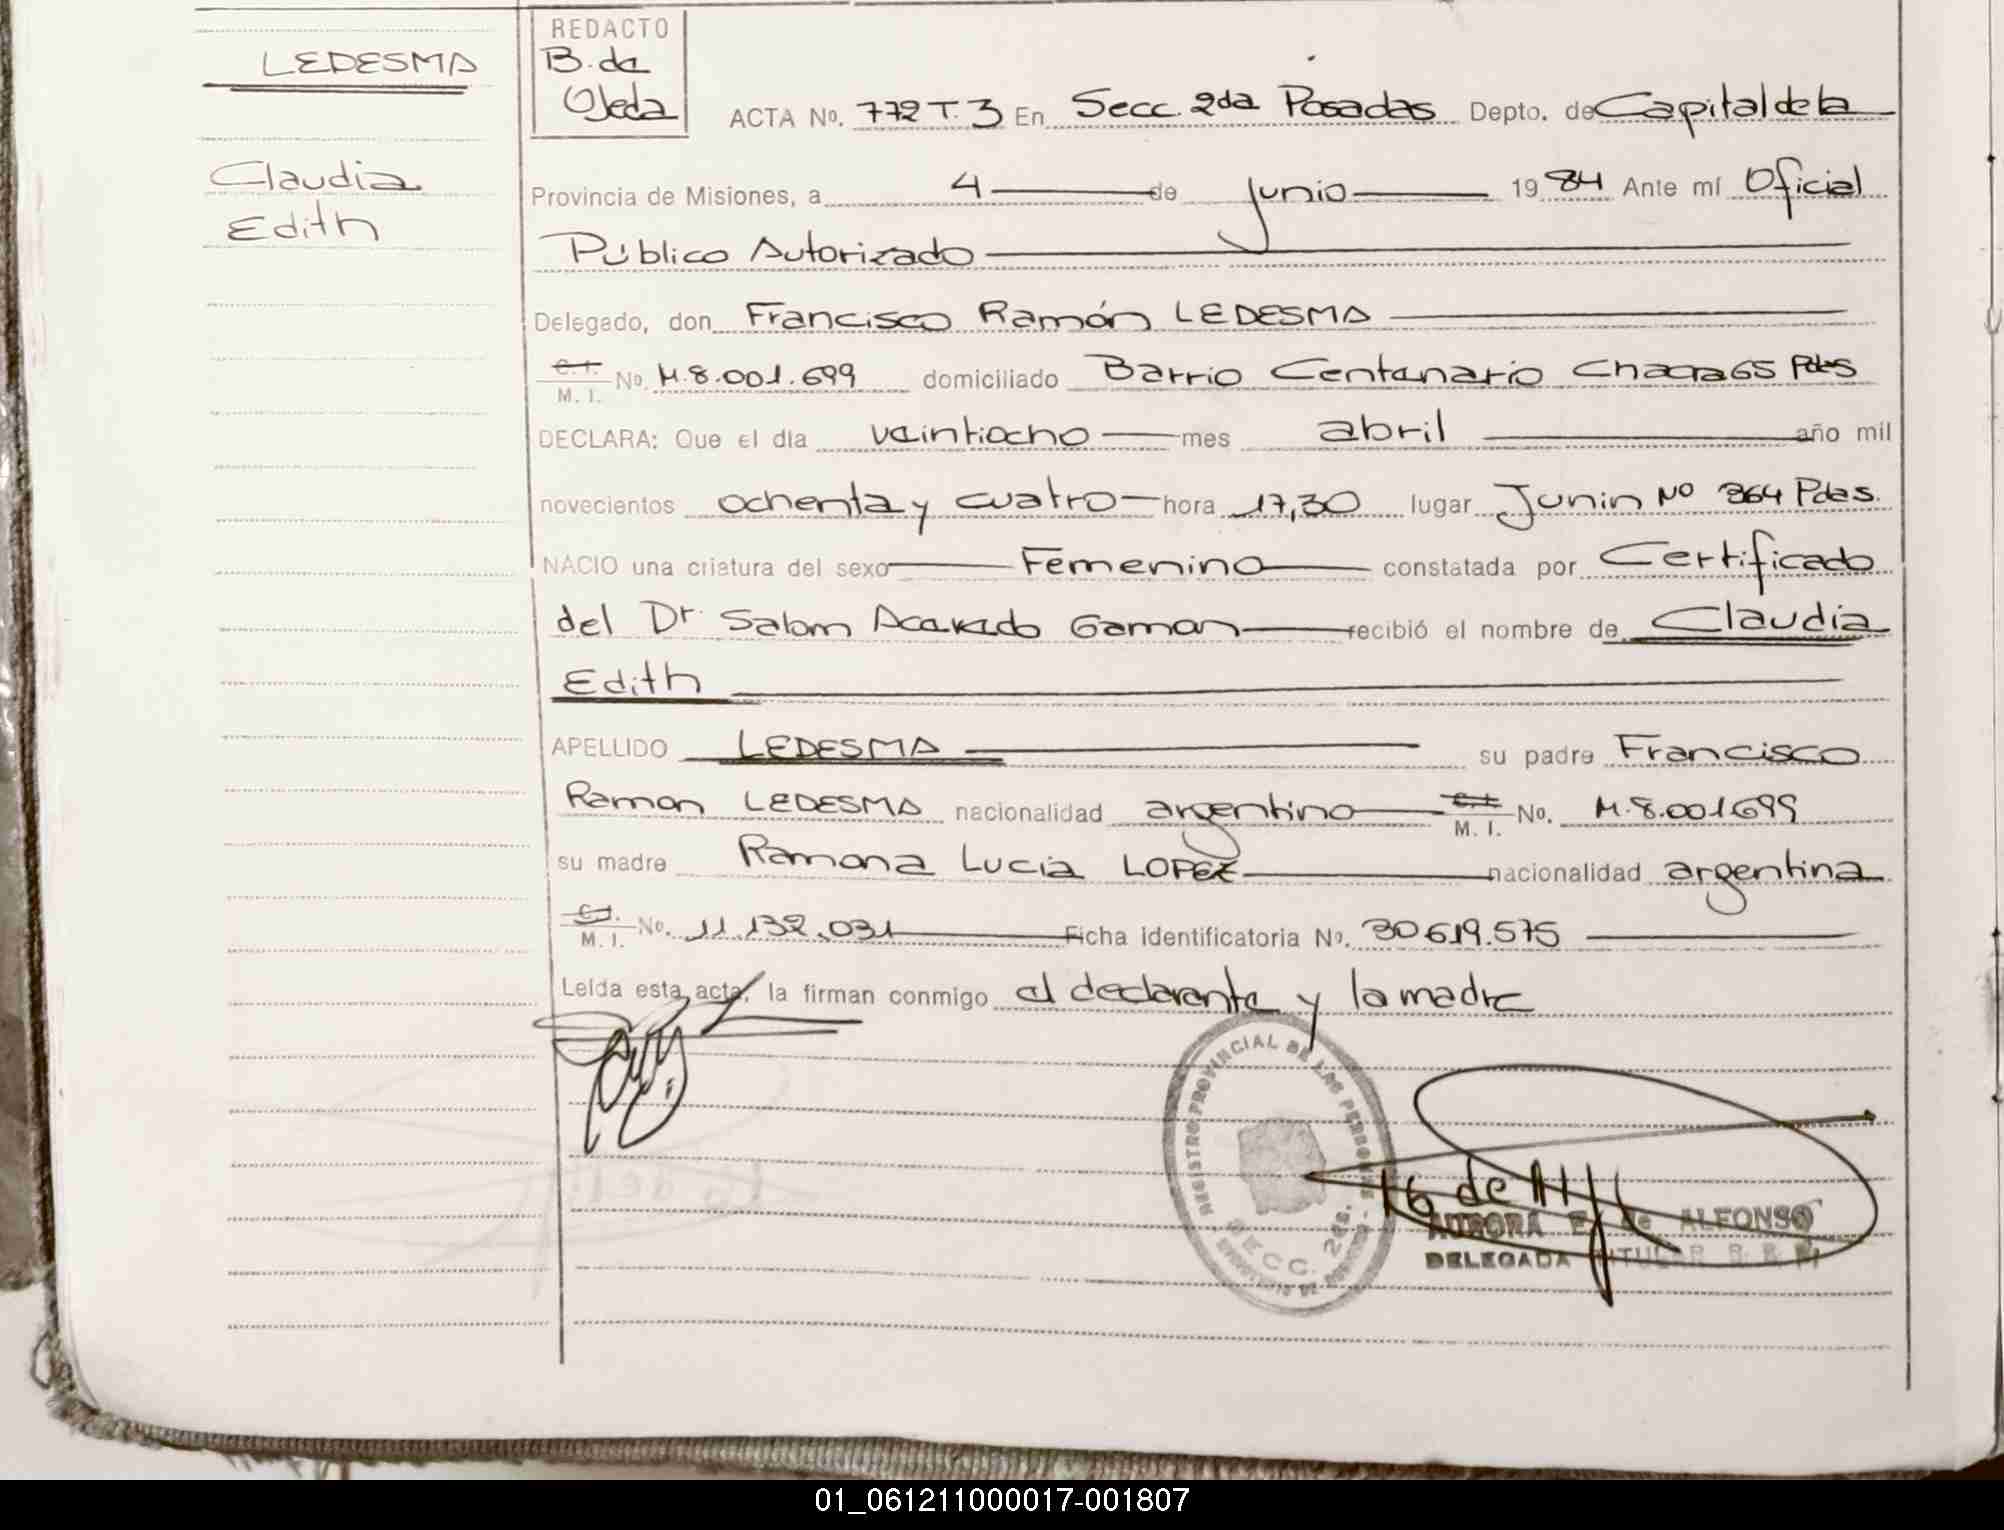 LEDESMA
Claudia
Edith
REDACTO
B. de
Ojeda
ACTA No. 772 T. 3 En Secc. 2da Posadas Depto. de Capital de la
Provincia de Misiones, a 4 de junio 1984 Ante mí Oficial
Público Autorizado
Delegado, don Francisco Ramón LEDESMA
C. I. M. I. No. M. 8.001.699 domiciliado Barrio Centenario Chacra 65 Pdas
DECLARA: Que el día veintiocho mes abril año mil
novecientos ochenta y cuatro hora 17,30 lugar Junin Nº 364 Pdas.
NACIO una criatura del sexo Femenino constatada por Certificado
del Dr. Salom recibió el nombre de Claudia
Edith
APELLIDO LEDESMA su padre Francisco
Ramon LEDESMA nacionalidad argentino C. I. M. I. No. M. 8.001699
su madre Ramona Lucia LOPEZ nacionalidad argentina
C. I. M. I. No. 11.132.031 Ficha identificatoria No. 30619.575
Leída esta acta, la firman conmigo el declarante y la madre
REGISTRO PROVINCIAL DE LAS PERSONAS
SECC. 2da.
AURORA E. de ALFONSO
DELEGADA TITULAR R. P. P.
01_061211000017-001807